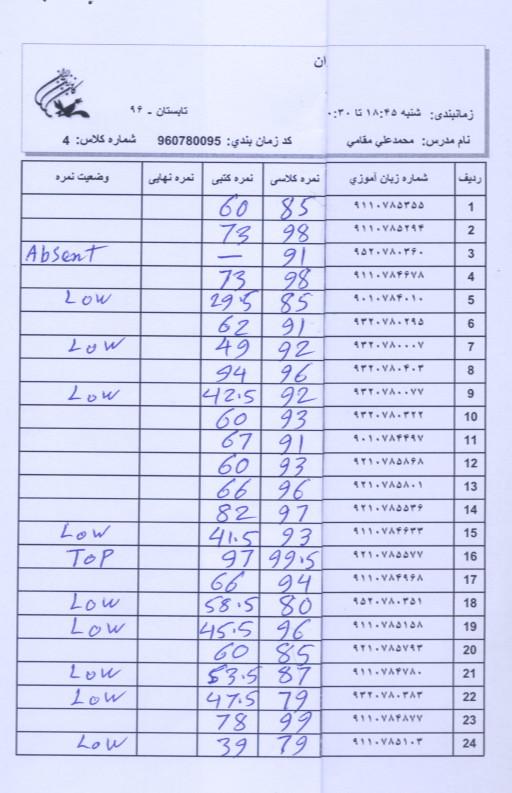 ان
زمانبندی: شنبه ۱۸:۴۵ تا ۰:۳۰
تابستان - ۹۶
نام مدرس: محمدعلي مقامي کد زمان بندي: 960780095 شماره کلاس: 4
ردیف شماره زبان آموزي نمره کلاسی نمره کتبی نمره نهایی وضعیت نمره
1 ۹۱۱۰۷۸۵۳۵۵ 85 60
2 ۹۱۱۰۷۸۵۲۹۴ 98 73
3 ۹۵۲۰۷۸۰۳۶۰ 91 — Absent
4 ۹۱۱۰۷۸۴۶۷۸ 98 73
5 ۹۰۱۰۷۸۴۰۱۰ 85 29.5 Low
6 ۹۳۲۰۷۸۰۲۹۵ 91 62
7 ۹۳۲۰۷۸۰۰۰۷ 92 49 Low
8 ۹۳۲۰۷۸۰۴۰۳ 96 94
9 ۹۳۲۰۷۸۰۰۷۷ 92 42.5 Low
10 ۹۳۲۰۷۸۰۳۲۲ 93 60
11 ۹۰۱۰۷۸۴۴۹۷ 91 67
12 ۹۲۱۰۷۸۵۸۶۸ 93 60
13 ۹۲۱۰۷۸۵۸۰۱ 96 66
14 ۹۲۱۰۷۸۵۵۳۶ 97 82
15 ۹۱۱۰۷۸۴۶۳۳ 93 41.5 Low
16 ۹۲۱۰۷۸۵۵۷۷ 99.5 97 TOP
17 ۹۱۱۰۷۸۴۹۶۸ 94 66
18 ۹۵۲۰۷۸۰۳۵۱ 80 58.5 Low
19 ۹۱۱۰۷۸۵۱۵۸ 96 45.5 Low
20 ۹۲۱۰۷۸۵۷۹۳ 85 60
21 ۹۱۱۰۷۸۴۷۸۰ 87 53.5 Low
22 ۹۳۲۰۷۸۰۳۸۳ 79 47.5 Low
23 ۹۱۱۰۷۸۴۸۷۷ 99 78
24 ۹۱۱۰۷۸۵۱۰۳ 79 39 Low